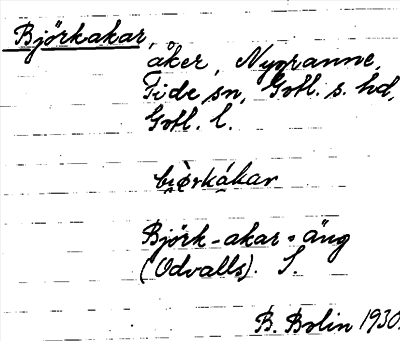 Björkakar,
åker, Nygranne,
Fide sn, Gotl. s. hd,
Gotl. l.
Björk-akar-äng
(Odvalls). S.
B. Bolin 1930.